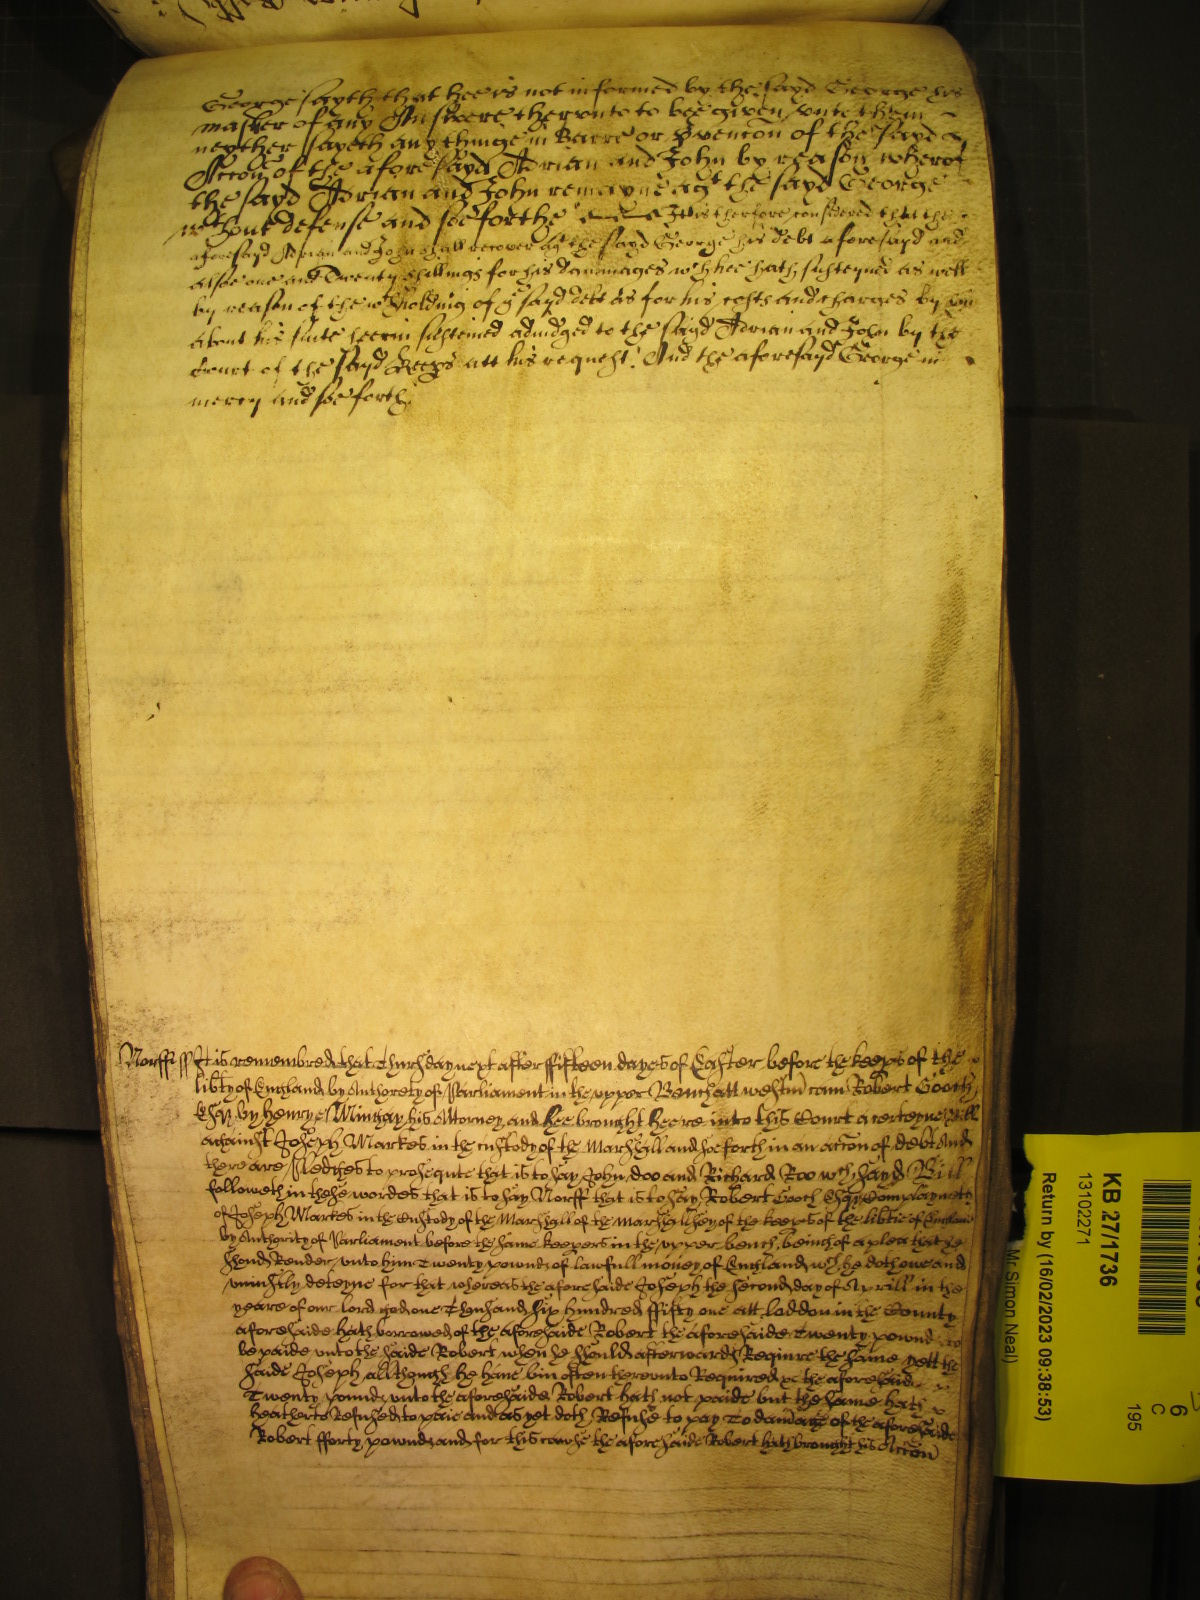 George sayth that hee is not informed by the sayd George his
master of any Answere therunto to bee given unto them
neyther sayeth any thinge in Barre or Prevencon of the sayd
Accon of the aforesayd Adrian and John by reason wherof
the sayd Adrian and John remayne agt the sayd George
wthout defense and soe forthe It is therfore considered that the
aforesayd Adrian and John shall recover agt the sayd George his debt aforesayd and
alsoe one and Twenty shillings for his dammages wch hee hath susteyned as well
by reason of the wthholding of ye sayd debt as for his costs and charges by him
about his suite herin susteined adiudged to the sayd Adrian and John by the
Court of the sayd Keeps att his request. And the aforesayd George in
mercy And soe forth
Norff ss It is remembred that Thursday next after fifteen dayes of Easter before the keeps of the
libty of England by Authorety of Parliament in the upper Bench att westm cam Robert Gooch
by Henry Mingay his Attorney and hee brought heere into this Court a certeyne Bill
against Joseph Markes in the custody of the Marshall and soe forth in an accon of debt And
there are Pledges to prosequte that is to say John doo and Richard Roo wch sayd Bill
followeth in these wordes that is to say Norff that is to say Robert Gooch Complayneth
of Joseph Markes in the Custody of the Marshall of the marshalsey of the keeps of the libtie of England
by Authority of Parliament before the same keepers in the upper bench beinch of a plea that he
render unto him Twenty pounds of lawfull money of England wch he doth owe and
uniustly deteyne for that whereas the aforesaide Joseph the second day of Aprill in the
yeare of our lord god one Thousand six hundred ffifty one att Loddon in the County
aforesaide hath borrowed of the aforesaide Robert the aforesaide Twenty pound to
be paide unto the saide Robert when he should afterwards Require the same yett the
saide Joseph allthough he have bin often thereunto Required the aforesaid
Twenty pounds unto the aforesaide Robert hath not paide but the same hath
heatherto Refused to paie and as yet doth Refuse to pay To damage of the aforesaide
Robert fforty pounds and for this cawse the aforesaide Robert hath brought his Accon
KB 27/1736
13102271
Return by (16/02/2023 09:38:53)
Mr Simon Neal)
6
C
195